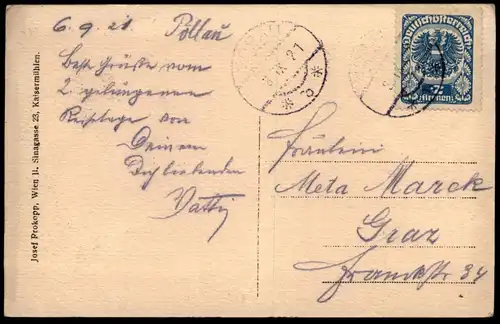 6.9.21 Pöllau
Beste Grüsse vom
2. gelungenen
Reisetage von
Deinem
Dich liebenden
Vatti
Fräulein
Meta Marek
Graz
Franckstr 34
Deutschösterreich
Kronen
IX 21
Josef Prokopp, Wien II. Sinagasse 23, Kaisermühlen.